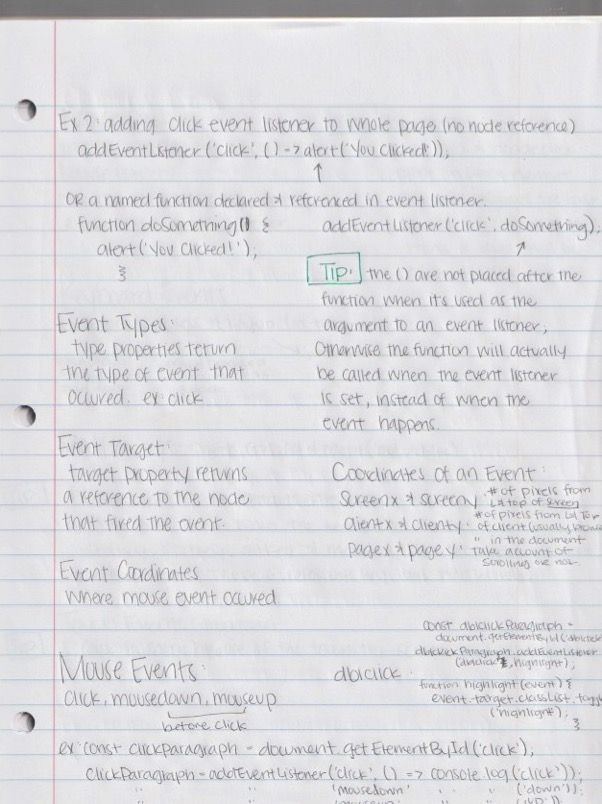 Ex 2: adding click event listener to whole page (no node reference)
addEventListener('click', () -> alert('You Clicked!'));
↑
OR a named function declared & referenced in event listener.
function doSomething() {
alert('You Clicked!');
}
addEventListener('click', doSomething);
↑
Tip: the () are not placed after the
function when it's used as the
argument to an event listener,
Otherwise the function will actually
be called when the event listener
is set, instead of when the
event happens.
Event Types:
type properties return
the type of event that
occured. ex click
Event Target:
target property returns
a reference to the node
that fired the event.
Event Coordinates
where mouse event occured
Coordinates of an Event:
screenx & screeny: # of pixels from
L & top of screen
clientx & clienty: # of pixels from L & Top
of client (usually
pagex & pagey: " in the document
take account of
scrolling
Mouse Events:
click, mousedown, mouseup
before click
dblclick:
const dblclickParagraph =
document.getElementById('dblclick
dblclickParagraph.addEventListener
('dblclick', highlight);
function highlight(event) {
event.target.classList.toggle
('highlight');
}
ex: const clickParagraph = document.getElementById('click');
clickParagraph = addEventListener('click', () => console.log('click'));
" " 'mousedown' " " ('down'));